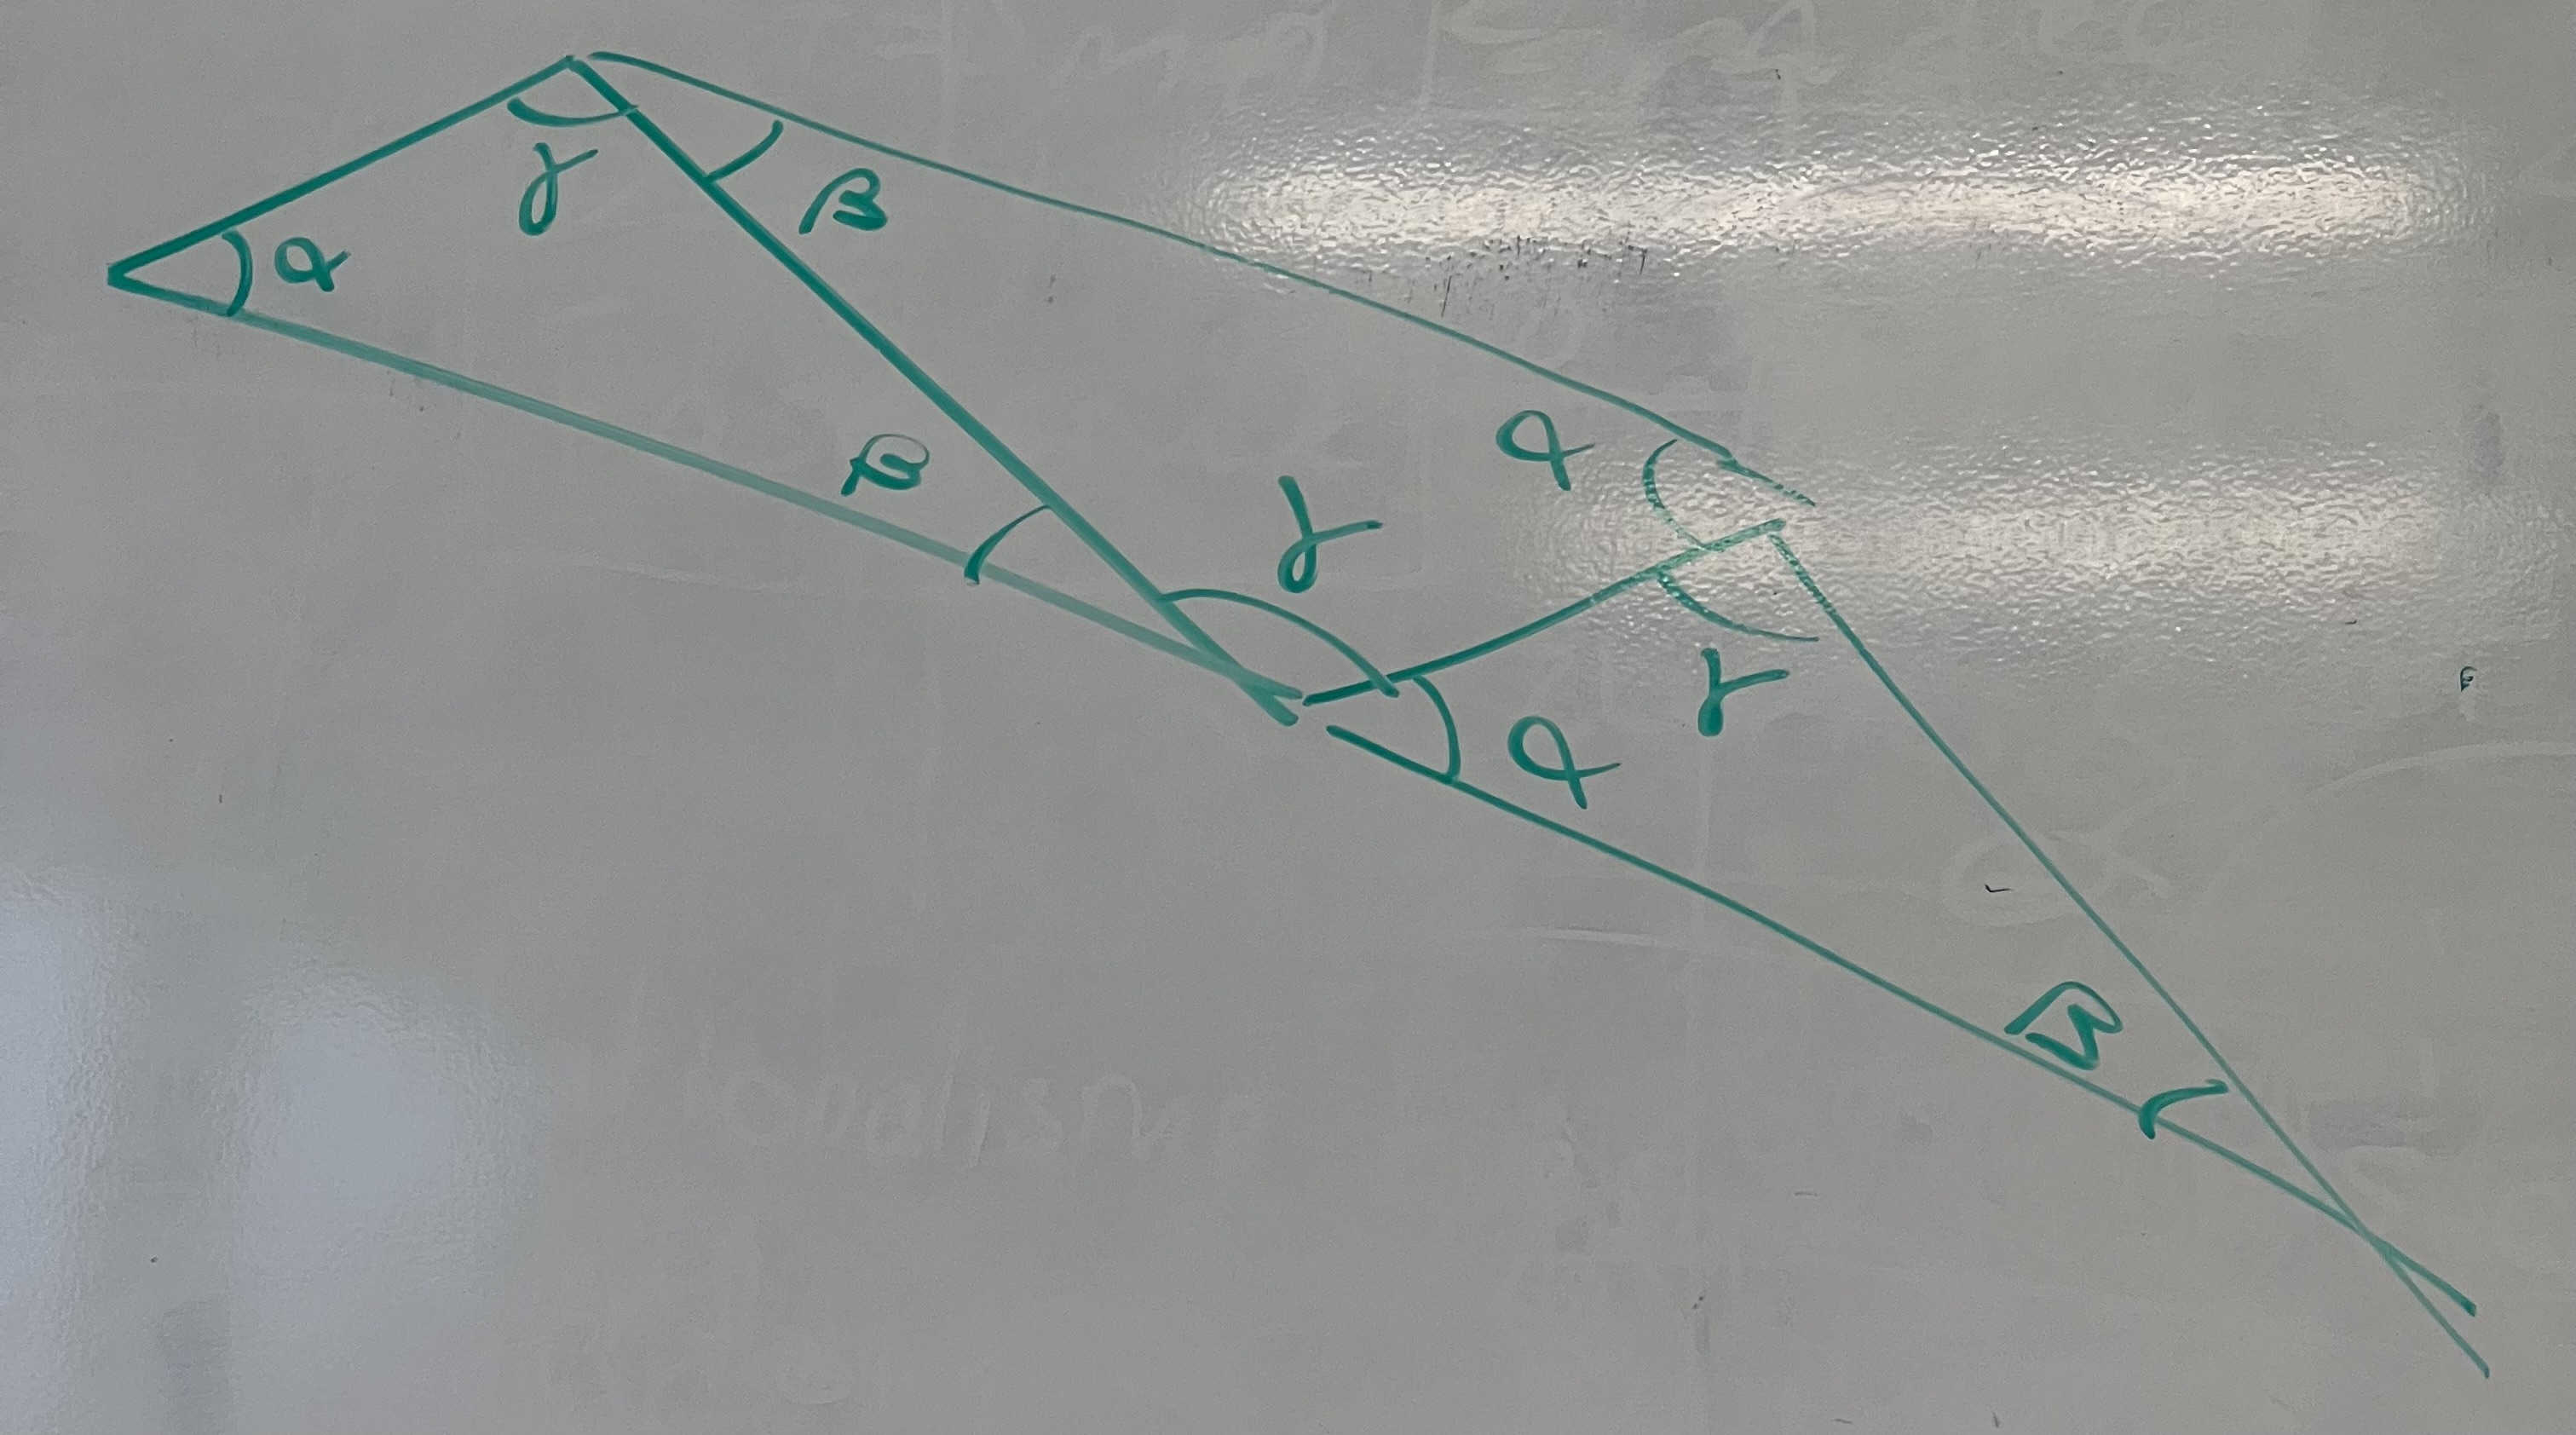 γ
β
α
β
α
γ
γ
α
β